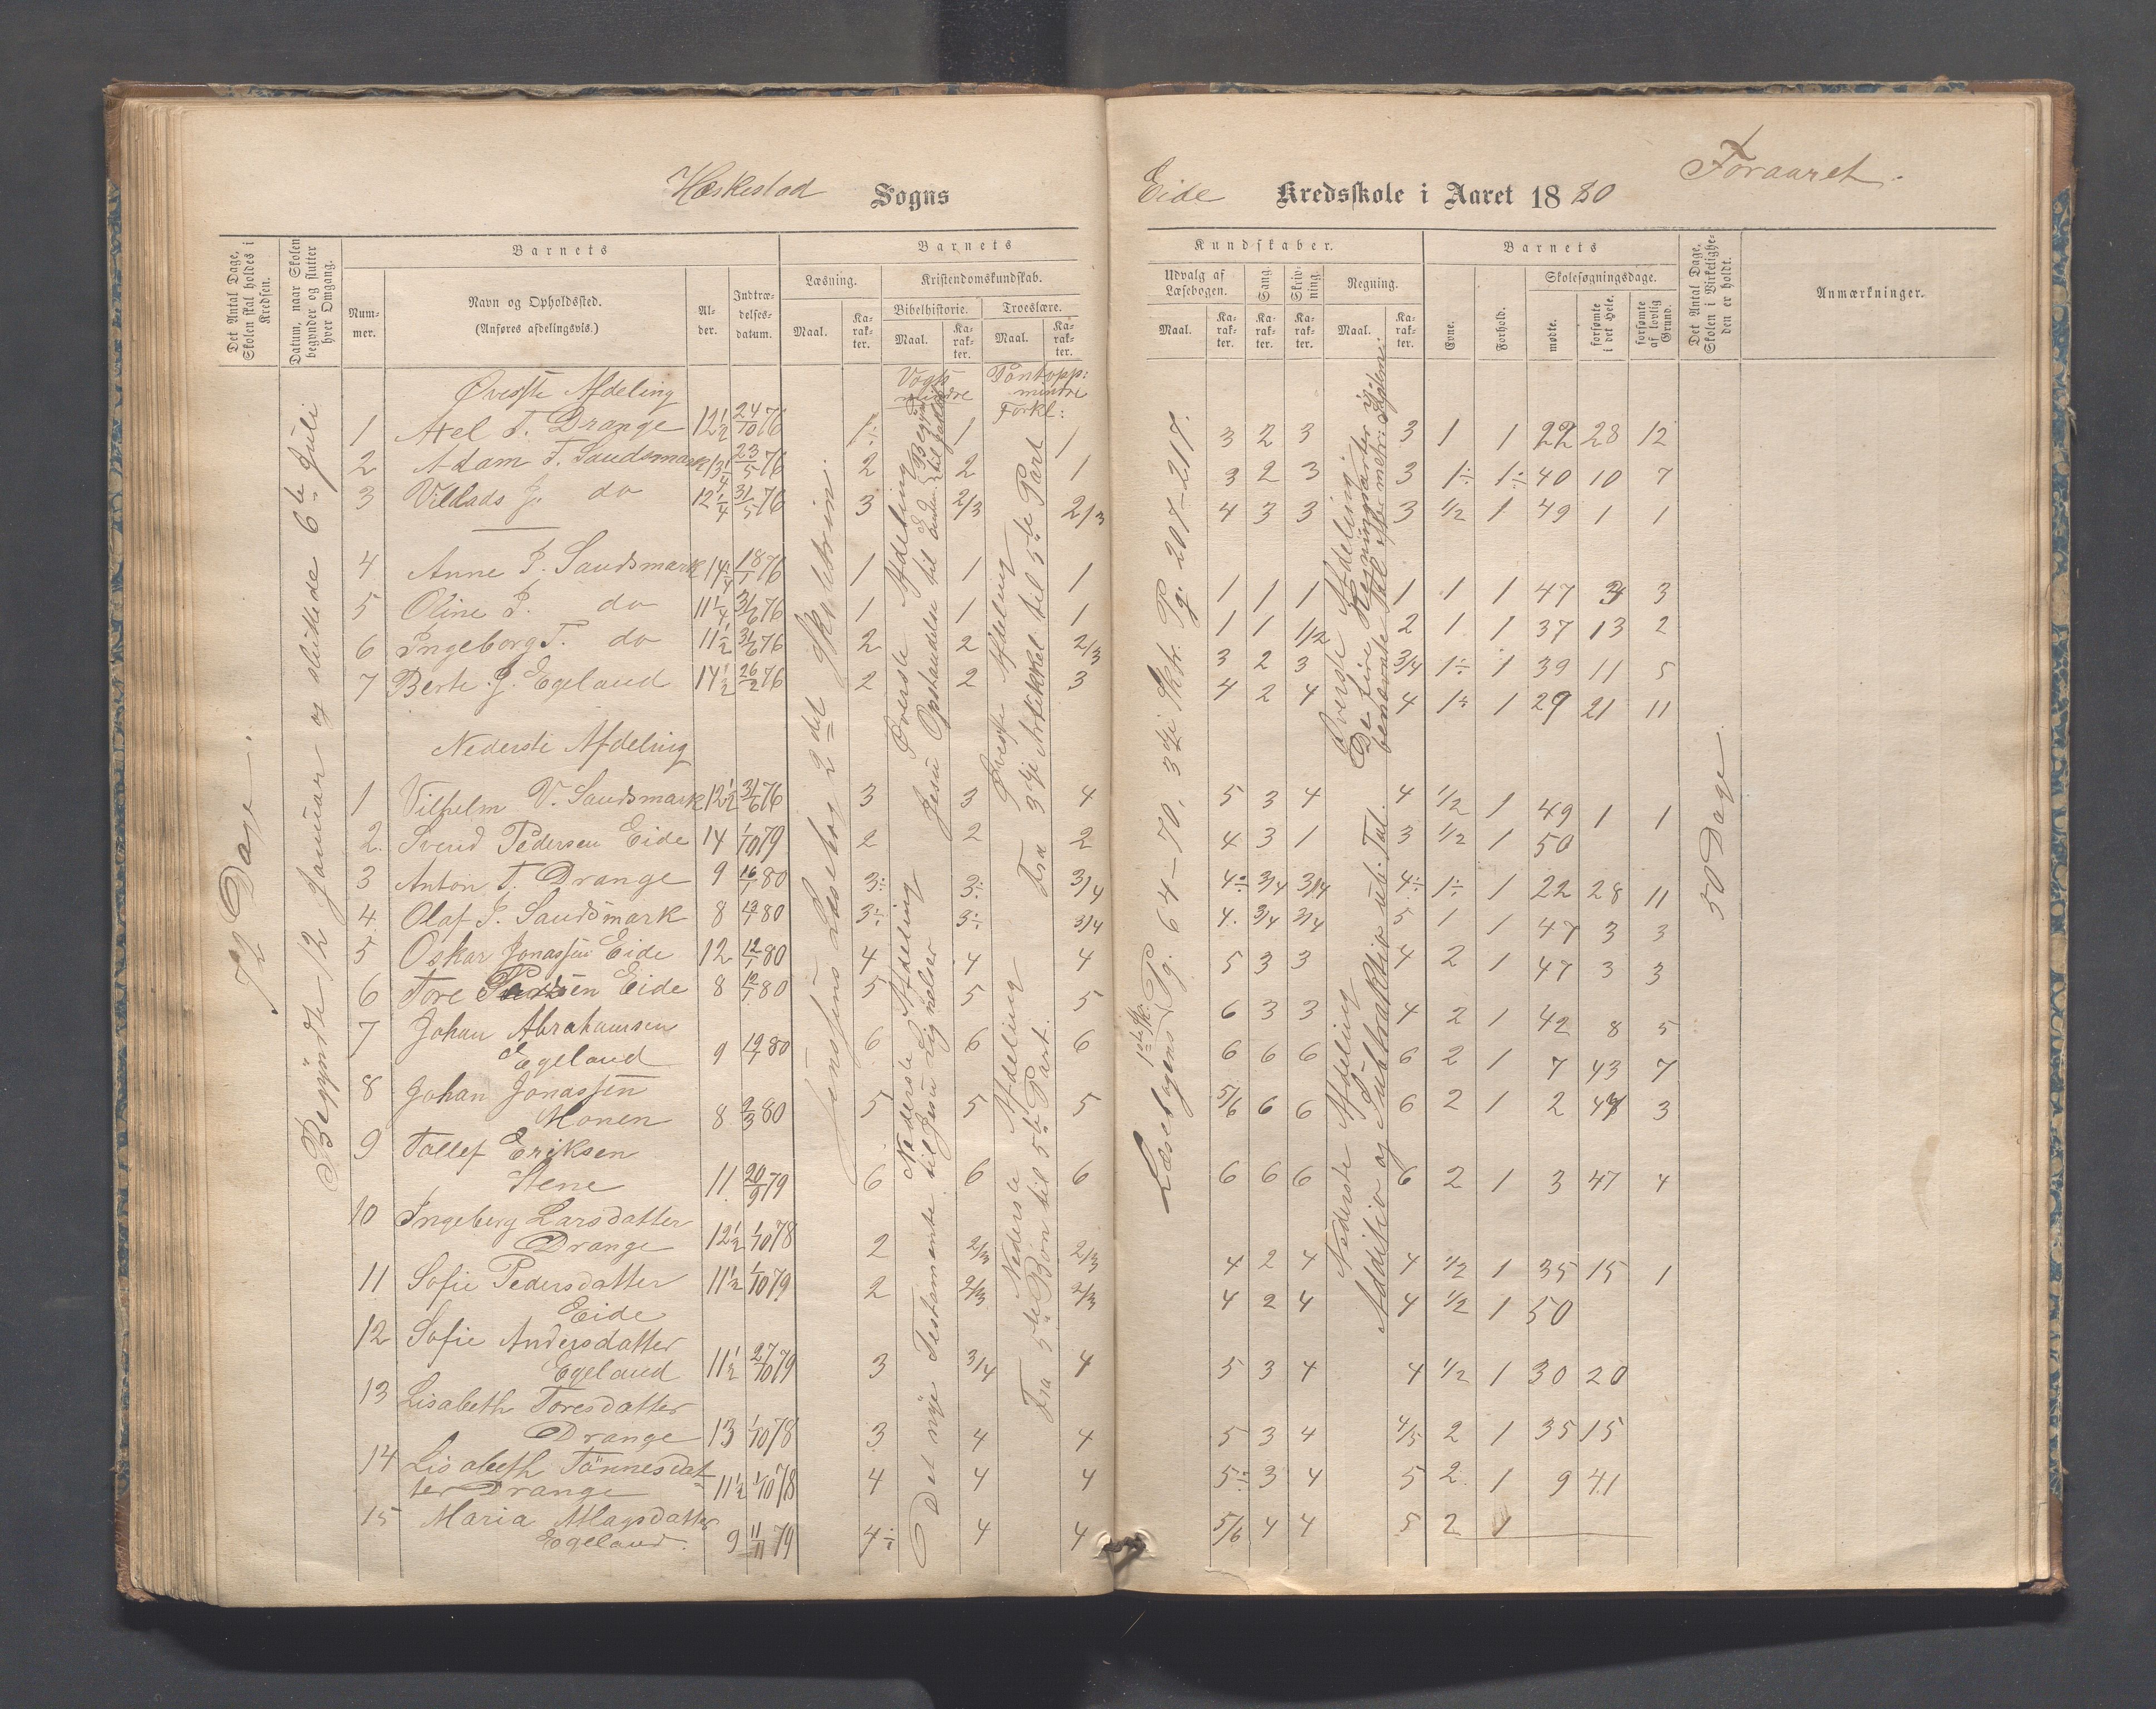 Heskestad Sogns
Eide Kredsskole i Aaret 1880
Foraaret.
Det Antal Dage, Skolen skal holdes i Kredsen.
Datum, naar Skolen begynder og slutter hver Omgang.
Barnets
Nummer.
Navn og Opholdssted.
(Anføres afdelingsvis.)
Alder.
Indtrædelsesdatum.
Barnets
Læsning.
Maal.
Karakter.
Kristendomskundskab.
Bibelhistorie.
Maal.
Karakter.
Troeslære.
Maal.
Karakter.
Kundskaber.
Udvalg af Læsebogen.
Maal.
Karakter.
Sang.
Karakter.
Skrivning.
Karakter.
Regning.
Maal.
Karakter.
Barnets
Evne.
Forhold.
Skolesøgningsdage.
mødte.
forsømte i det Hele.
forsømte af lovlig Grund.
Det Antal Dage, Skolen i Virkeligheden er holdt.
Anmærkninger.
72 Dage.
Begyndte 12 Januar og sluttede 6te Juli
Jensens Læsebog 2det Skoletrin.
Vogts mindre
Øverste Afdeling
Nederste Afdeling
Det nye Testamente til Jesu Lignelser
Pontopp: mindre Forkl:
Øverste Afdeling
Fra 3die Artikkel til 5te Part
Nederste Afdeling
Fra 5te Bøn til 5te Part.
Læsebogens 1ste Sk: Pg. 64-70. 3die Sk: Pg. 207-217.
Øverste Afdeling.
De fire Regningsarter i
benævnte Tal
Nederste Afdeling
Additio og Subtraktio ub. Tal.
50 Dage
Øverste Afdeling
1 Axel T. Drange 12 1/2 24/10 76 1÷ 1 1 3 2 3 3 1 1 22 28 12
2 Adam T. Saudsmark 13 1/4 23/5 76 2 2 1 3 2 3 3 1÷ 1÷ 40 10 7
3 Villads J. do 12 1/4 31/5 76 3 2/3 2/3 4 3 3 3 1/2 1 49 1 1
4 Anne P. Saudsmark 14 1/4 18/1 76 1 1 1 1 1 1 1 1 1 47 3 3
5 Oline P. do 11 1/4 3/6 76 1 1 1 1 1 1/2 2 1 1 37 13 2
6 Ingeborg T. do 11 1/2 3/6 76 2 2 2/3 3 2 3 3/4 1÷ 1 39 11 5
7 Berte J. Egeland 14 1/2 26/2 76 2 2 3 4 2 4 4 1÷ 1 29 21 11
Nederste Afdeling
1 Vilhelm V. Saudsmark 12 1/2 31/6 76 3 3 4 5 3 4 4 1/2 1 49 1 1
2. Svend Pedersen Eide 14 1/10 79 2 2 2 4 3 1 3 1/2 1 50
3 Anton T. Drange 9 16/1 80 3÷ 3÷ 3/4 4÷ 3/4 3/4 4÷ 1÷ 1 22 28 11
4. Olaf P. Saudsmark 8 13/1 80 3÷ 3÷ 3/4 4. 3/4 3/4 5 1 1 47 3 3
5 Oskar Jonassen Eide 12 12/1 80 4 4 4 5 3 3 4 2 1 47 3 3
6 Tore Eide 8 12/1 80 5 5 5 6 3 3 4 2 1 42 8 5
7 Johan Abrahamsen
Egeland 9 19/1 80 6 6 6 6 6 6 6 2 1 7 43 7
8 Johan Jonassen
Monen 8 2/3 80 5 5 5 5/6 6 6 6 2 1 2 48 3
9 Tollef Eriksen
Stene 11. 20/9 79 6 6 6 6 6 6 6 2 1 3 47 4
10 Ingeborg Larsdatter
Drange 12 1/2 1/10 78 2 2/3 2/3 4 2 4 4 1/2 1 35 15 1
11 Sofie Pedersdatter 11 1/2 1/10 79 2 2/3 2/3 4 2 4 4 1/2 1 50
Eide
12 Sofie Andersdatter
Egeland 11 1/2 27/10 79 3 3/4 4 5 3 4 4 1/2 1 30 20
13 Lisabeth Toresdatter
Drange 13 1/10 78 3 4 4 5 3 4 4/5 2 1 35 15
14 Lisabeth Tönnesdat-
ter Drange 11 1/2 1/10 78 4 4 4 5÷ 3 4 5 2. 1 9 41
15 Maria Atlagsdatter
Egeland. 9 11/11 79 4÷ 4 4 5/6 4 4 5 2 1